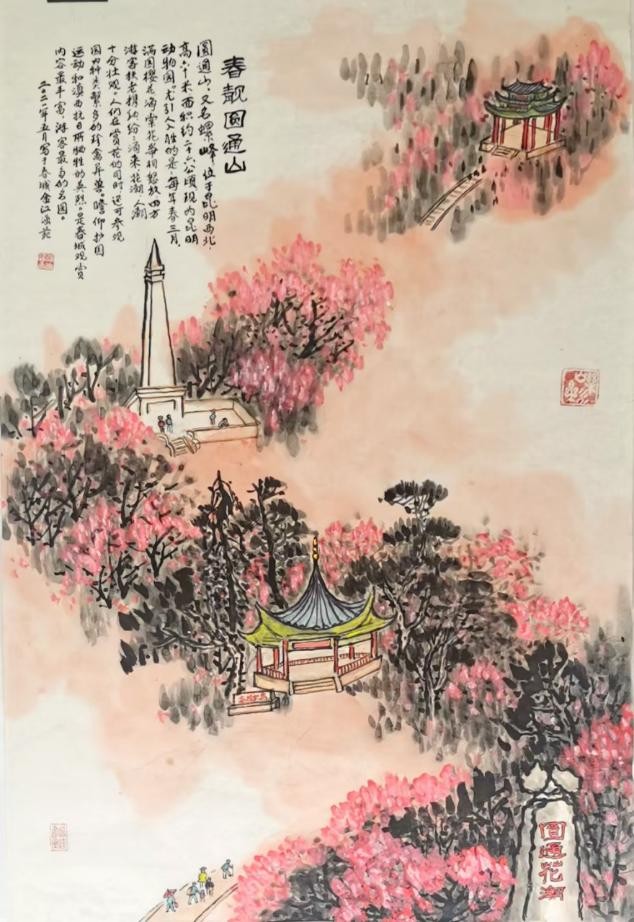 春靓圆通山
圆通山,又名螺峰,位于昆明西北,
高六十米面积约二十六公顷现为昆明
动物园,尤引人入胜的是,每年春三月,
满园樱花海棠花争相怒放四方
游客扶老携幼纷涌来花潮人潮
十分壮观。人们在赏花的同时还可参观
园内种类繁多的珍禽异兽。瞻仰护国
运动和滇西抗日所牺牲的英烈。是春城观赏
内容最丰富,游客最多的名园。
二〇二一年五月写于春城金江
圆通花潮